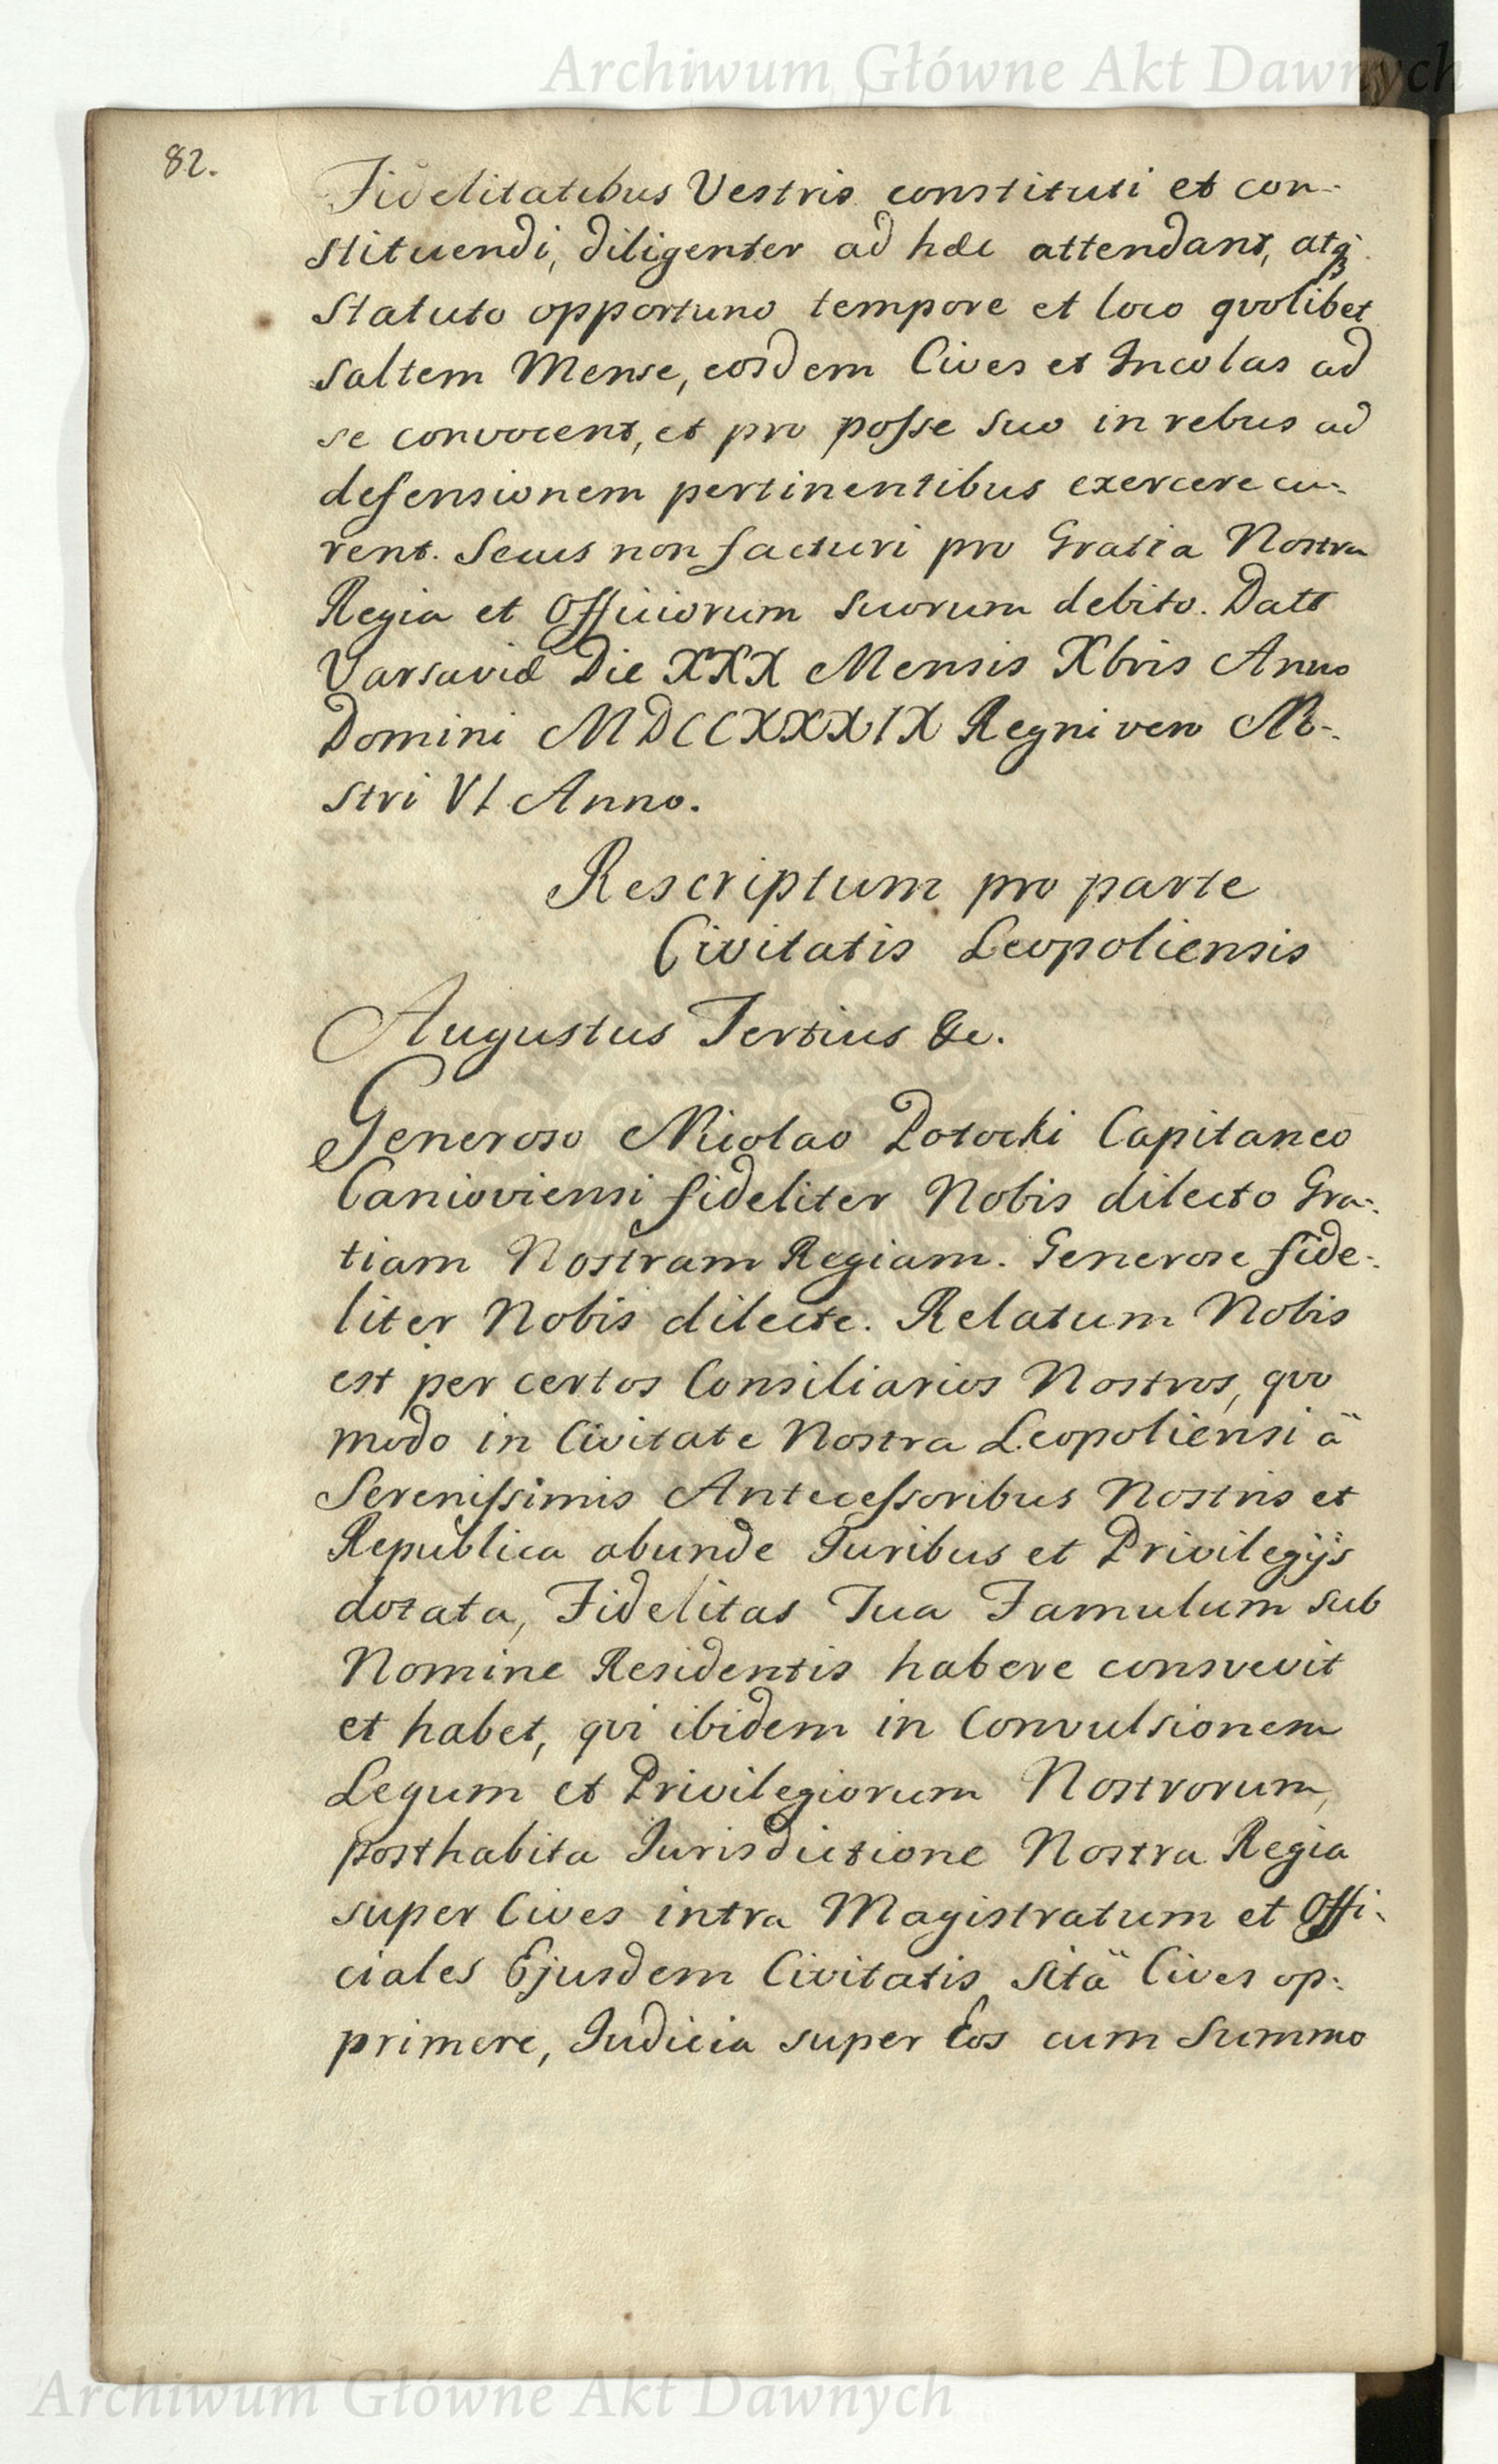 Archiwum Główne Akt Dawnych
82.
Fidelitatibus Vestris constituti et con-
stituendi, diligenter ad hæc attendant, atq;
Statuto opportuno tempore et loco quolibet
saltem Mense, eosdem Cives et Incolas ad
se convocent, et pro posse suo in rebus ad
defensionem pertinentibus exercere cu-
rent. Secus non facturi pro Gratia Nostra
Regia et Officiorum suorum debito. Datt
Varsaviæ Die XXX Mensis Xbris Anno
Domini MDCCXXXIX Regni vero No-
stri VI Anno.
Rescriptum pro parte
Civitatis Leopoliensis
Augustus Tertius &c.
Generoso Nicolao Potocki Capitaneo
Canioviensi fideliter Nobis dilecto Gra-
tiam Nostram Regiam. Generose fide-
liter Nobis dilecte. Relatum Nobis
est per certos Consiliarios Nostros, quo
modo in Civitate Nostra Leopoliensi ä
Serenissimis Antecessoribus Nostris et
Republica abunde Juribus et Privilegijs
dotata, Fidelitas Tua Famulum sub
Nomine Residentis habere consvevit
et habet, qui ibidem in Convulsionem
Legum et Privilegiorum Nostrorum,
posthabita Jurisdictione Nostra Regia
super Cives intra Magistratum et Offi-
ciales Ejusdem Civitatis sitä Cives op-
primere, Judicia super Eos cum Summo
Archiwum Główne Akt Dawnych